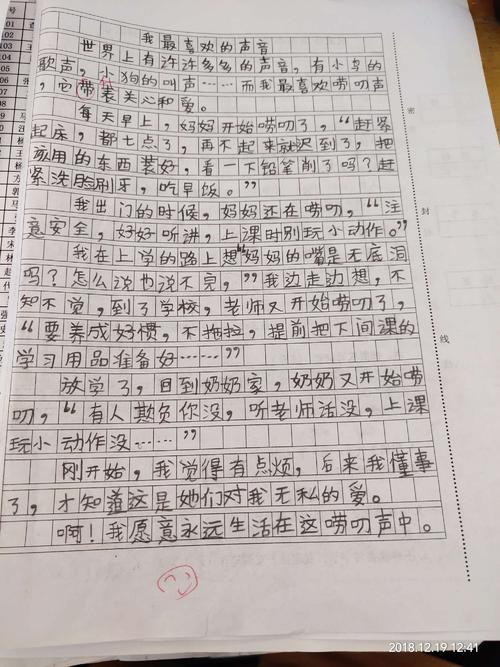 我最喜欢的声音
世界上有许许多多的声音，有小鸟的
歌声，小狗的叫声……而我最喜欢唠叨声
，它带来关心和爱。
每天早上，妈妈开始唠叨了，“赶紧
起床，都七点了，再不起来就迟到了，把
该用的东西装好，看一下铅笔削了吗？赶
紧洗脸刷牙，吃早饭。”
我出门的时候，妈妈还在唠叨，“注
意安全，好好听讲，上课时别玩小动作。”
我在上学的路上想“妈妈的嘴是无底洞
吗？怎么说也说不完，”我边走边想，不
知不觉，到了学校，老师又开始唠叨了，
“要养成好惯，不拖拉，提前把下间课的
学习用品准备好……”
放学了，回到奶奶家，奶奶又开始唠
叨，“有人欺负你没，听老师话没，上课
玩小动作没……”
刚开始，我觉得有点烦，后来我懂事
了，才知道这是她们对我无私的爱。
啊！我愿意永远生活在这唠叨声中。
密
封
线
2018.12.19 12:41